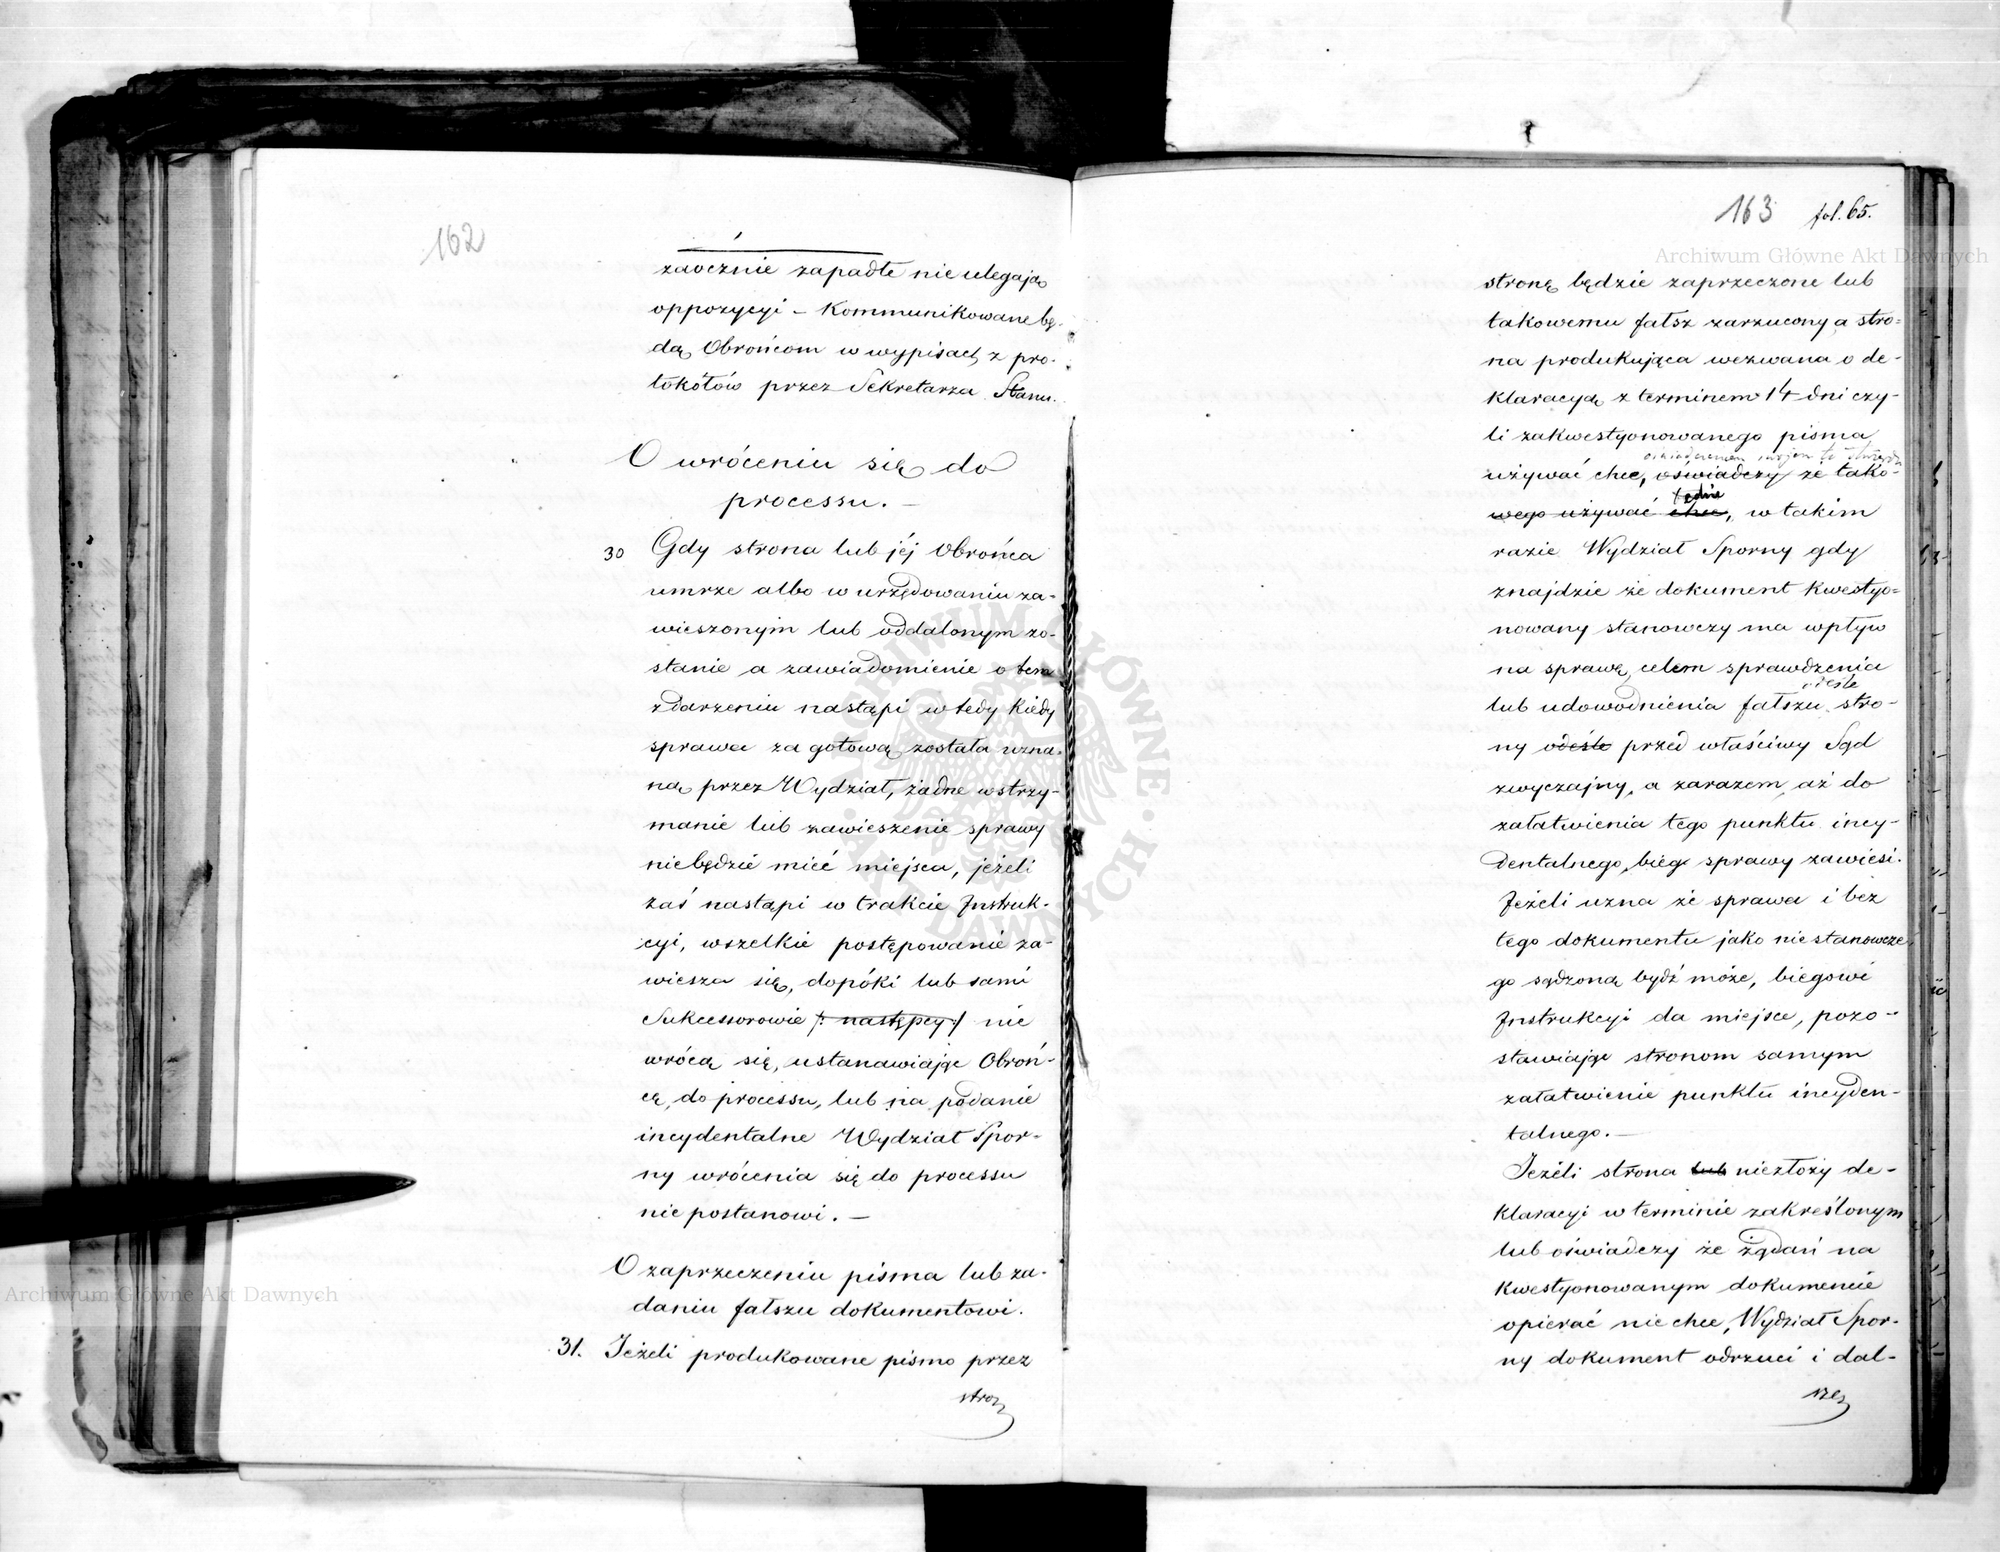 162
zaocznie zapadłe nie ulegają
oppozycyi – Kommunikowane bę-
dą Obrońcom w wypisach z pro-
tokółów przez Sekretarza Stanu.
O wróceniu się do
processu. –
30 Gdy strona lub jéj Obrońca
umrze albo w urzędowaniu za-
wieszonym lub oddalonym zo-
stanie a zawiadomienie o tem
zdarzeniu nastąpi wtedy kiedy
sprawa za gotową została uzna-
ną przez Wydział, żadne wstrzy-
manie lub zawieszenie sprawy
niebędzie mieć miejsca, jeżeli
zaś nastąpi w trakcie Instruk-
cyi, wszelkie postępowanie za-
wiesza się, dopóki lub sami
Sukcessorowie /: następcy :/ nie
wrócą się, ustanawiając Obroń-
cę, do processu, lub na podanie
incydentalne Wydział Spor-
ny wrócenia się do processu
nie postanowi. –
O zaprzeczeniu pisma lub za-
daniu fałszu dokumentowi.
31. Jeżeli produkowane pismo przez
stro
163 fol. 65.
stronę będzie zaprzeczone lub
takowemu fałsz zarzucony a stro=
na produkująca wezwana o de-
klaracyą z terminem 14 dni czy-
li zakwestyonowanego pisma
używać chce, oświadczy że tako-
wego używać chce, w takim
razie Wydział Sporny gdy
znajdzie że dokument kwestyo=
nowany stanowczy ma wpływ
na sprawę, celem sprawdzenia
odeśle
lub udowodnienia fałszu stro-
ny odeśle przed właściwy Sąd
zwyczajny, a zarazem, aż do
załatwienia tego punktu incy-
dentalnego, bieg sprawy zawiesi.
Jeżeli uzna że sprawa i bez
tego dokumentu jako niestanowcze
go sądzoną bydź może, biegowi
Instrukcyi da miejsce, pozo-
stawiając stronom samym
załatwienie punktu incyden-
talnego. –
Jeżeli strona lub niezłoży de-
klaracyi w terminie zakreślonym
lub oświadczy że żądań na
kwestyonowanym dokumencie
opierać nie chce, Wydział Spor-
ny dokument odrzuci i dal-
sze
Archiwum Główne Akt Dawnych
Archiwum Główne Akt Dawnych
ARCHIWUM GŁÓWNE AKT DAWNYCH